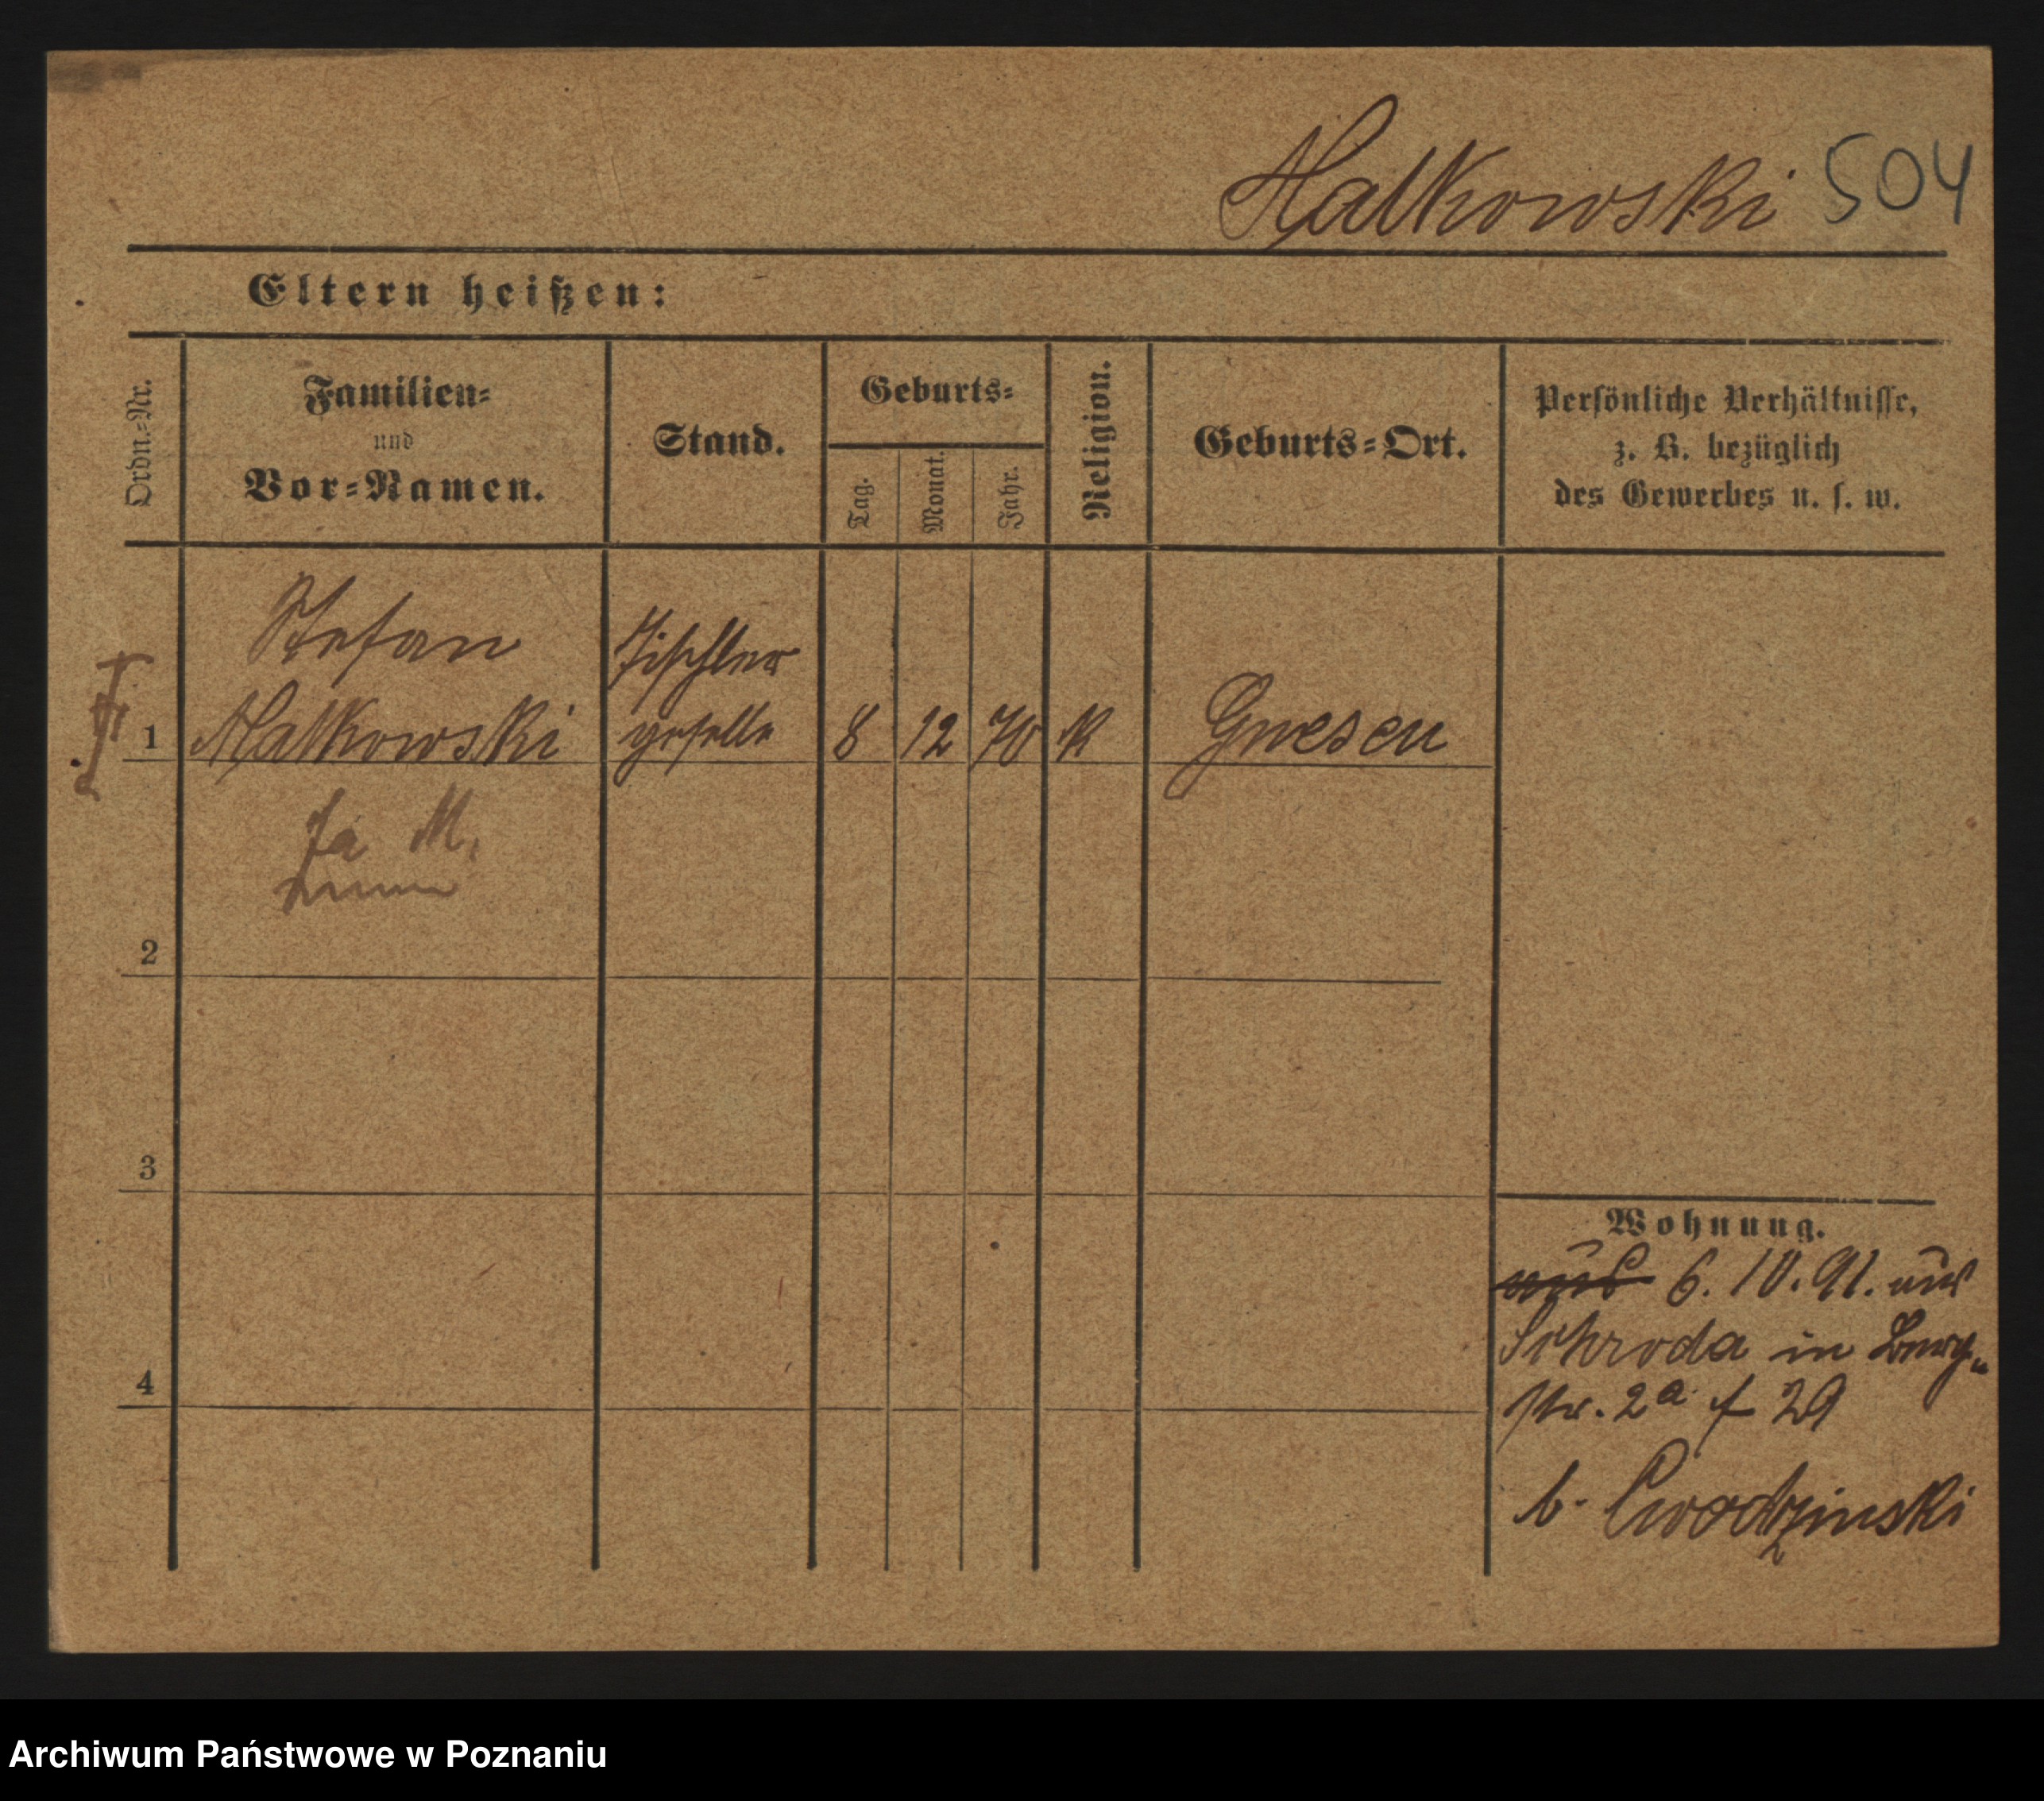 Malkowski 504
Eltern heißen:
Ordn.-Nr.
Familien-
und
Vor-Namen.
Stand.
Geburts-
Tag.
Monat.
Jahr.
Religion.
Geburts-Ort.
Persönliche Verhältnisse,
z. B. bezüglich
des Gewerbes u. s. w.
Stefan
Malkowski
Tischler
geselle
1
8 12 70 K Gnesen
Ja M.
2
3
4
Wohnung.
aus 6. 10. 91. aus
Schroda in Berg-
str. 2a f 29
b. Cwodzinski
Archiwum Państwowe w Poznaniu